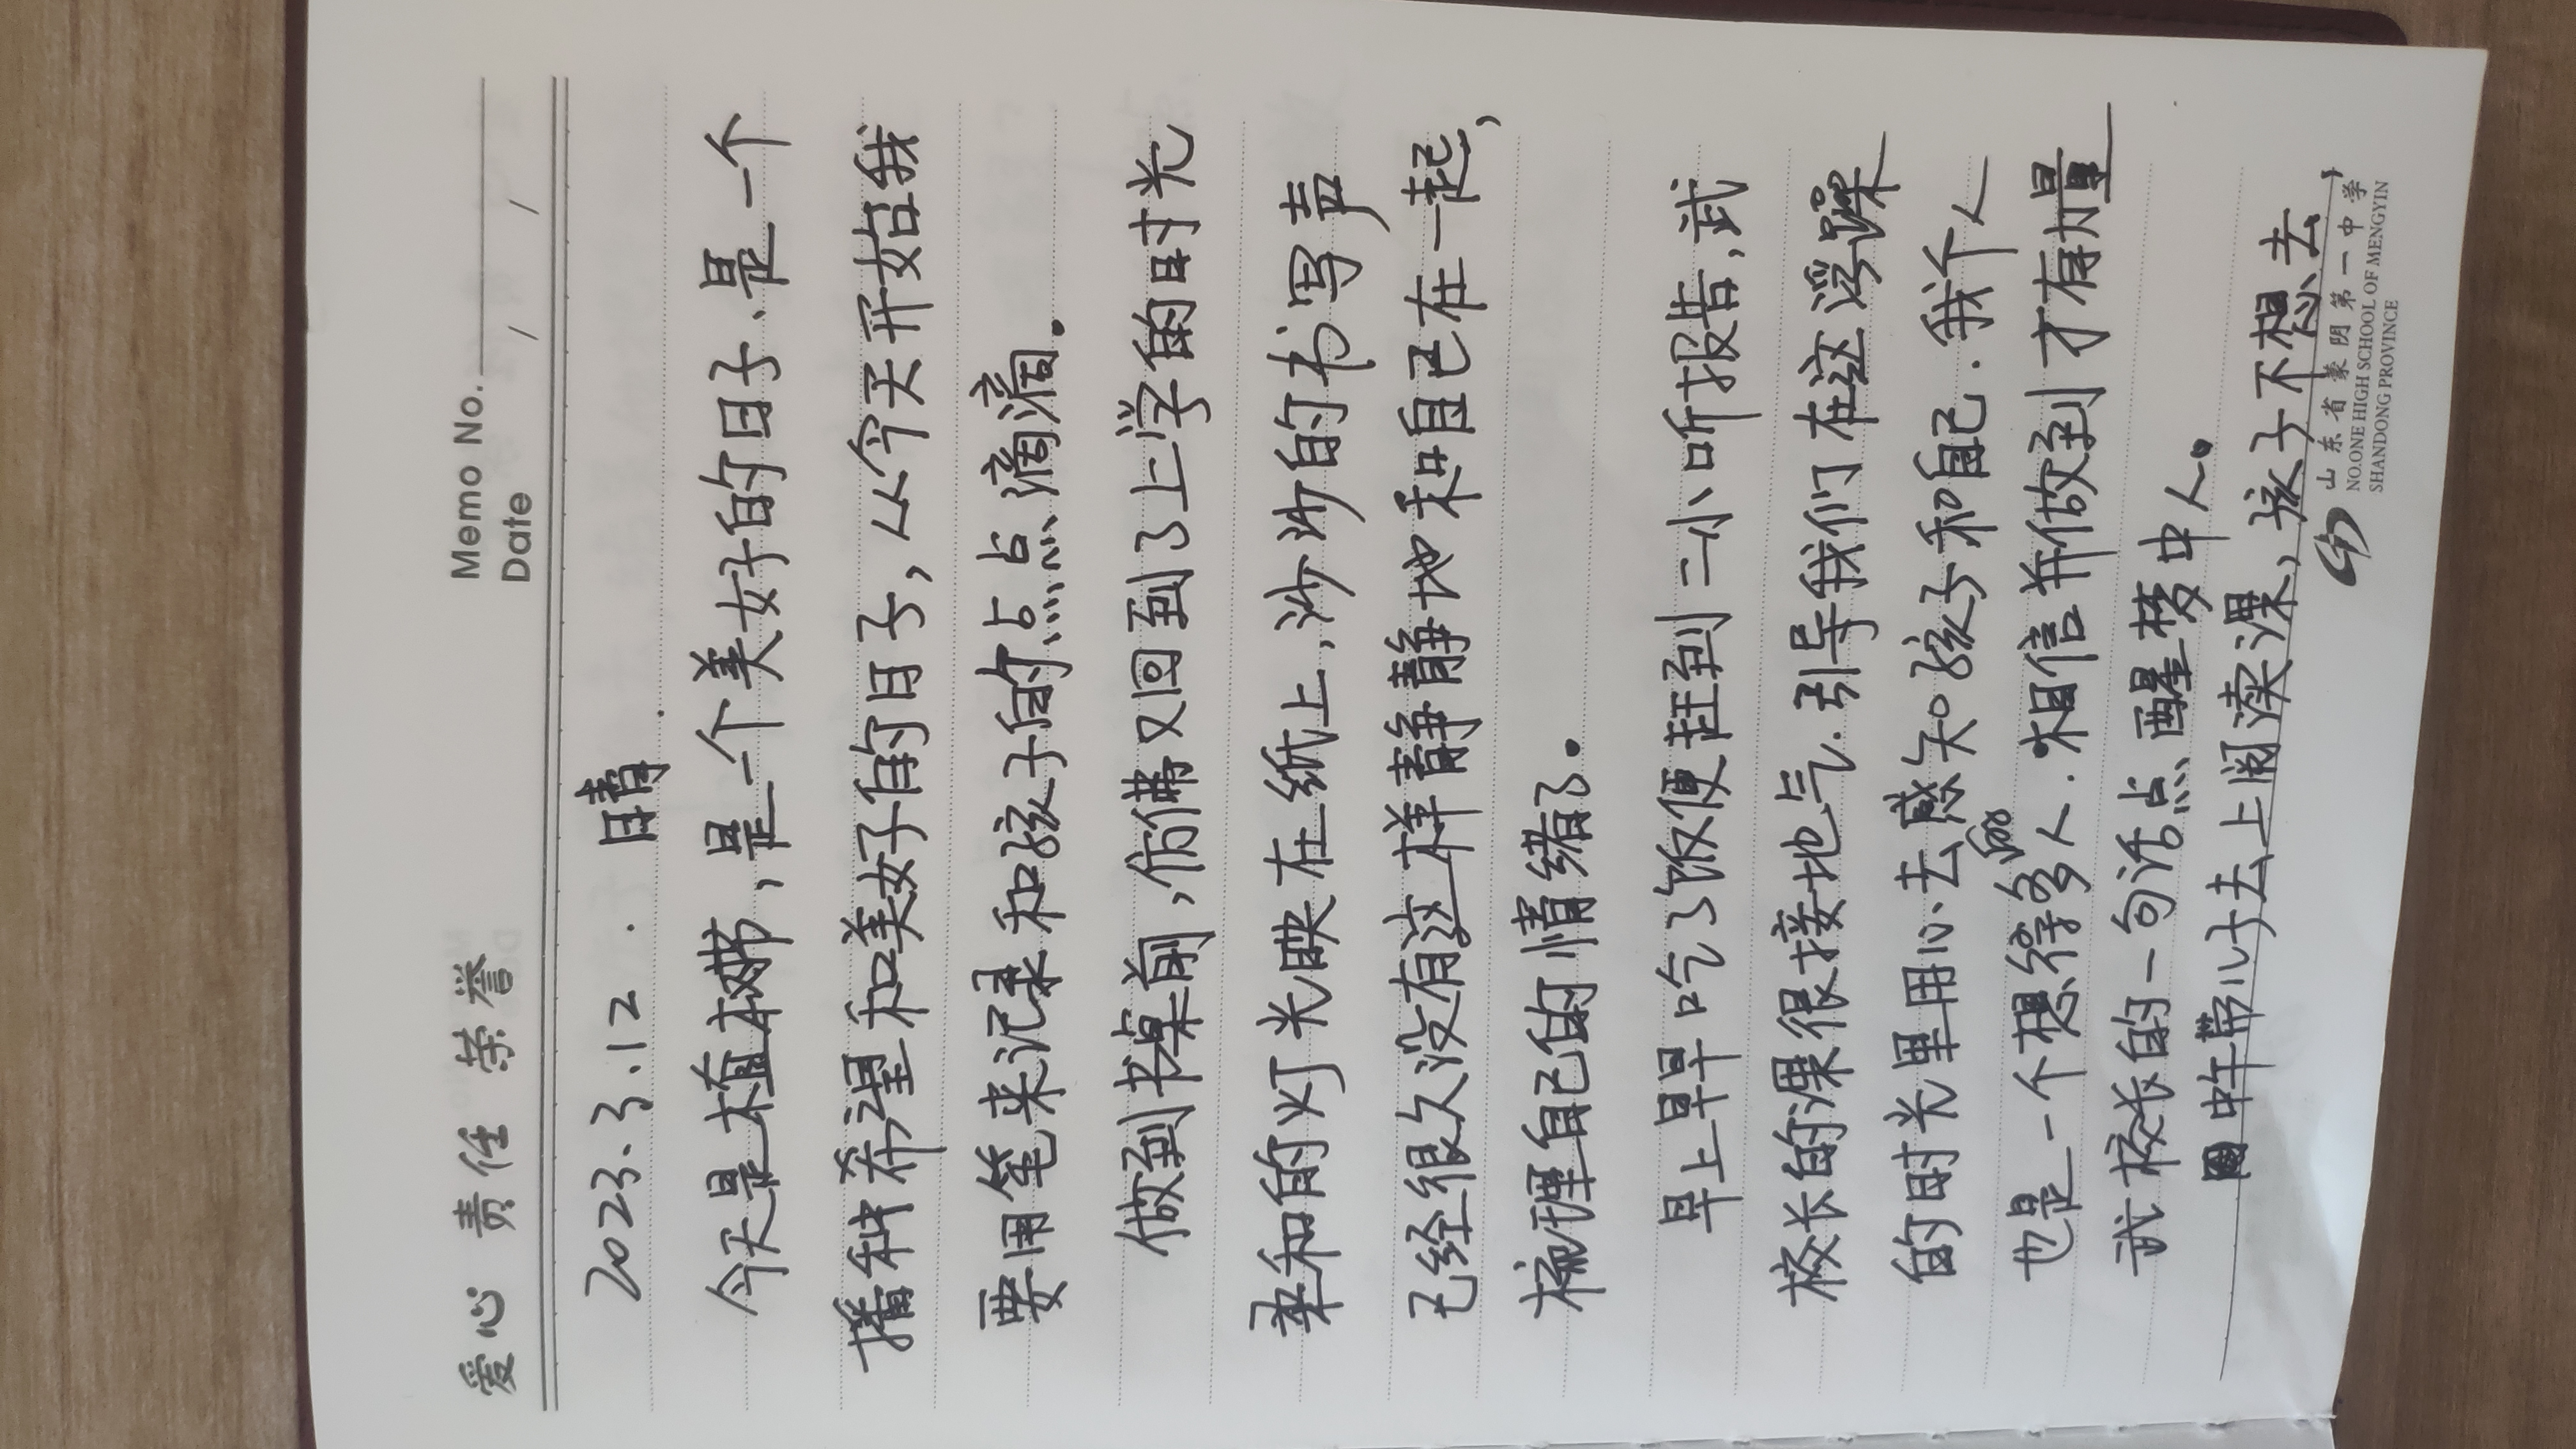 爱心 责任 荣誉
Memo No.
Date / /
2023.3.12. 晴.
今天是植树节,是一个美好的日子、是一个
播种希望和美好的日子,从今天开始我
要用笔来记录和孩子的点点滴滴。
做到书桌前,仿佛又回到了上学的时光
柔和的灯光映在纸上,沙沙的书写声
已经很久没有这样静静静地和自己在一起,
梳理自己的情绪了。
早上早早吃了饭便赶到二小听报告,武
校长的课很接地气.引导我们在这浮躁
的时光里用心去感知孩子和自己.我个人
也是一个想得多人.相信并做到才有力量
武校长的一句话点醒梦中人。
中午带儿子去上阅读课,孩子不想去,
山东省蒙阴第一中学
NO.ONE HIGH SCHOOL OF MENGYIN
SHANDONG PROVINCE